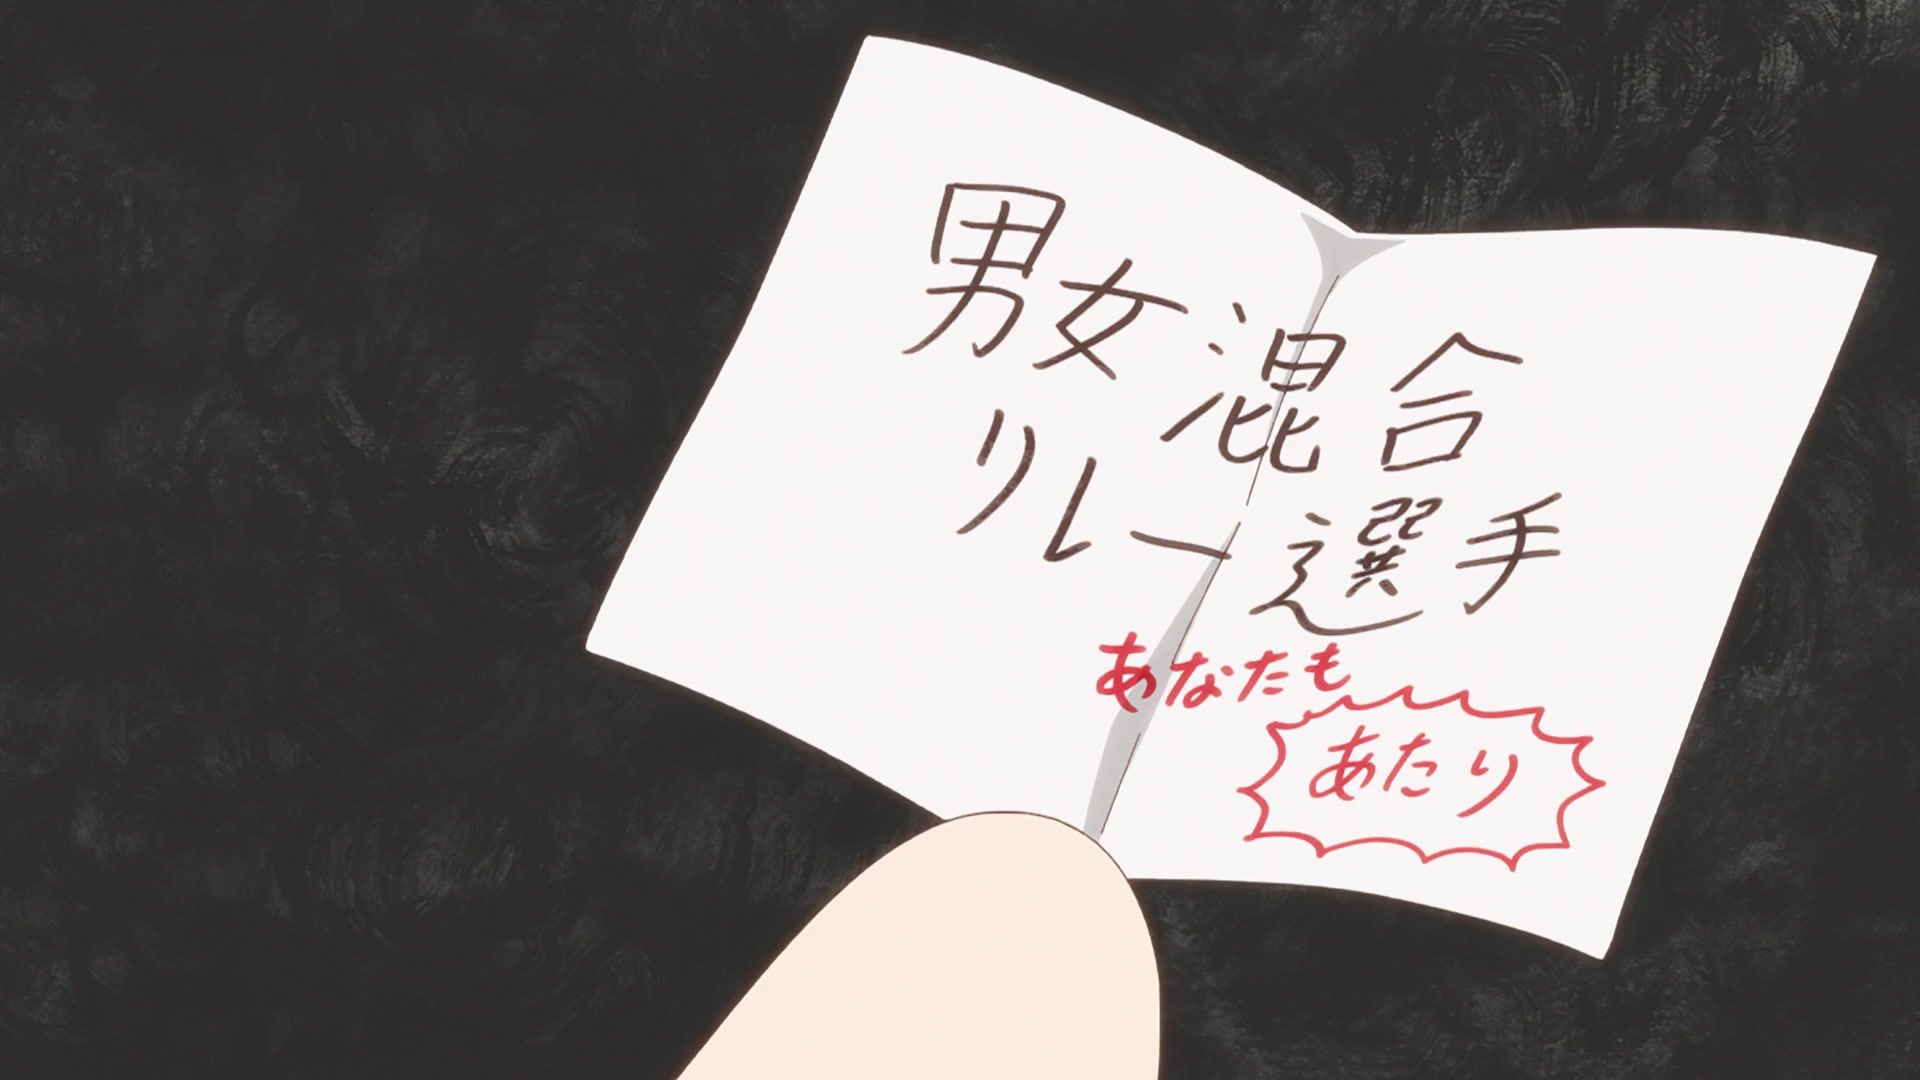 男女混合
リレー選手
あなたも
あたり